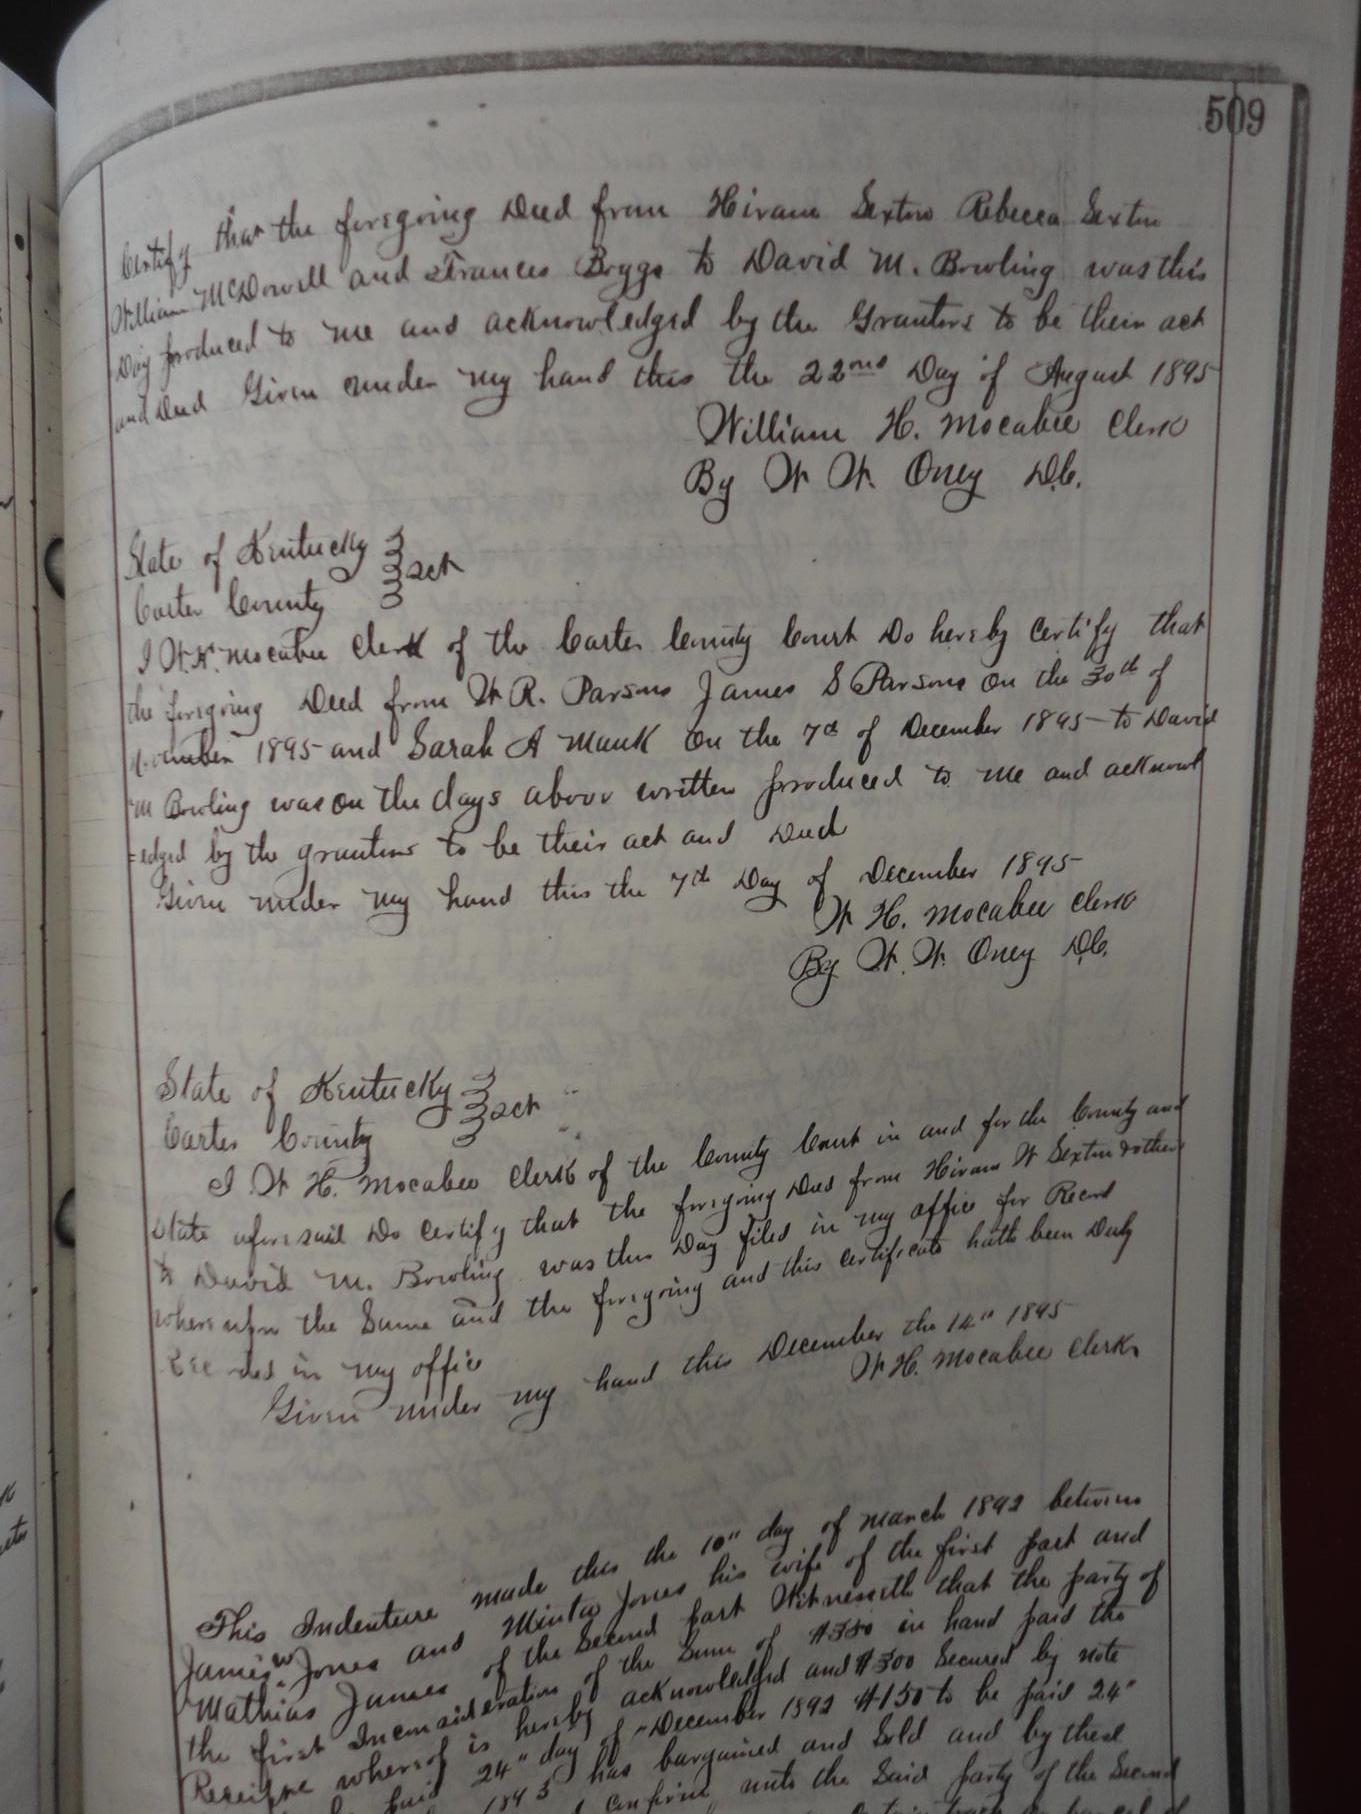 509
Certify that the foregoing Deed from Hiram Sexton Rebecca Sexton
William McDowell and Frances Boggs to David M. Bowling was this
Day produced to me and acknowledged by the Grantors to be their act
and Deed Given under my hand this the 22nd Day of August 1895
William H. Mocabee Clerk
By W W. Oney D.C.
State of Kentucky
Carter County Sct
I W.H. Mocabee Clerk of the Carter County Court Do hereby Certify that
the foregoing Deed from W R. Parsons James S Parsons on the 30th of
November 1895 and Sarah A Mauk on the 7th of December 1895 to David
M Bowling was on the days above written produced to me and acknowl
=edged by the grantors to be their act and Deed
Given under my hand this the 7th Day of December 1895
W H. Mocabee Clerk
By W. W. Oney D.C.
State of Kentucky
Carter County Sct
I W H. Mocabee Clerk of the County Court in and for the County and
State aforesaid Do Certify that the foregoing Deed from Hiram W Sexton & others
to David M. Bowling was this Day filed in my office for Record
whereupon the Same and the foregoing and this certificate hath been Duly
Recorded in my office
Given under my hand this December the 14" 1895
W H. Mocabee Clerk
This Indenture made this the 10" day of March 1892 between
James W Jones and Minta Jones his wife of the first part and
Mathias James of the Second part Witnesseth that the party of
the first Inconsideration of the Sum of $350 in hand paid the
Receipt whereof is hereby acknowledged and $300 Secured by note
paid 24" day of December 1892 $150 to be paid 24"
1893 has bargained and Sold and by these
confirm unto the Said party of the Second